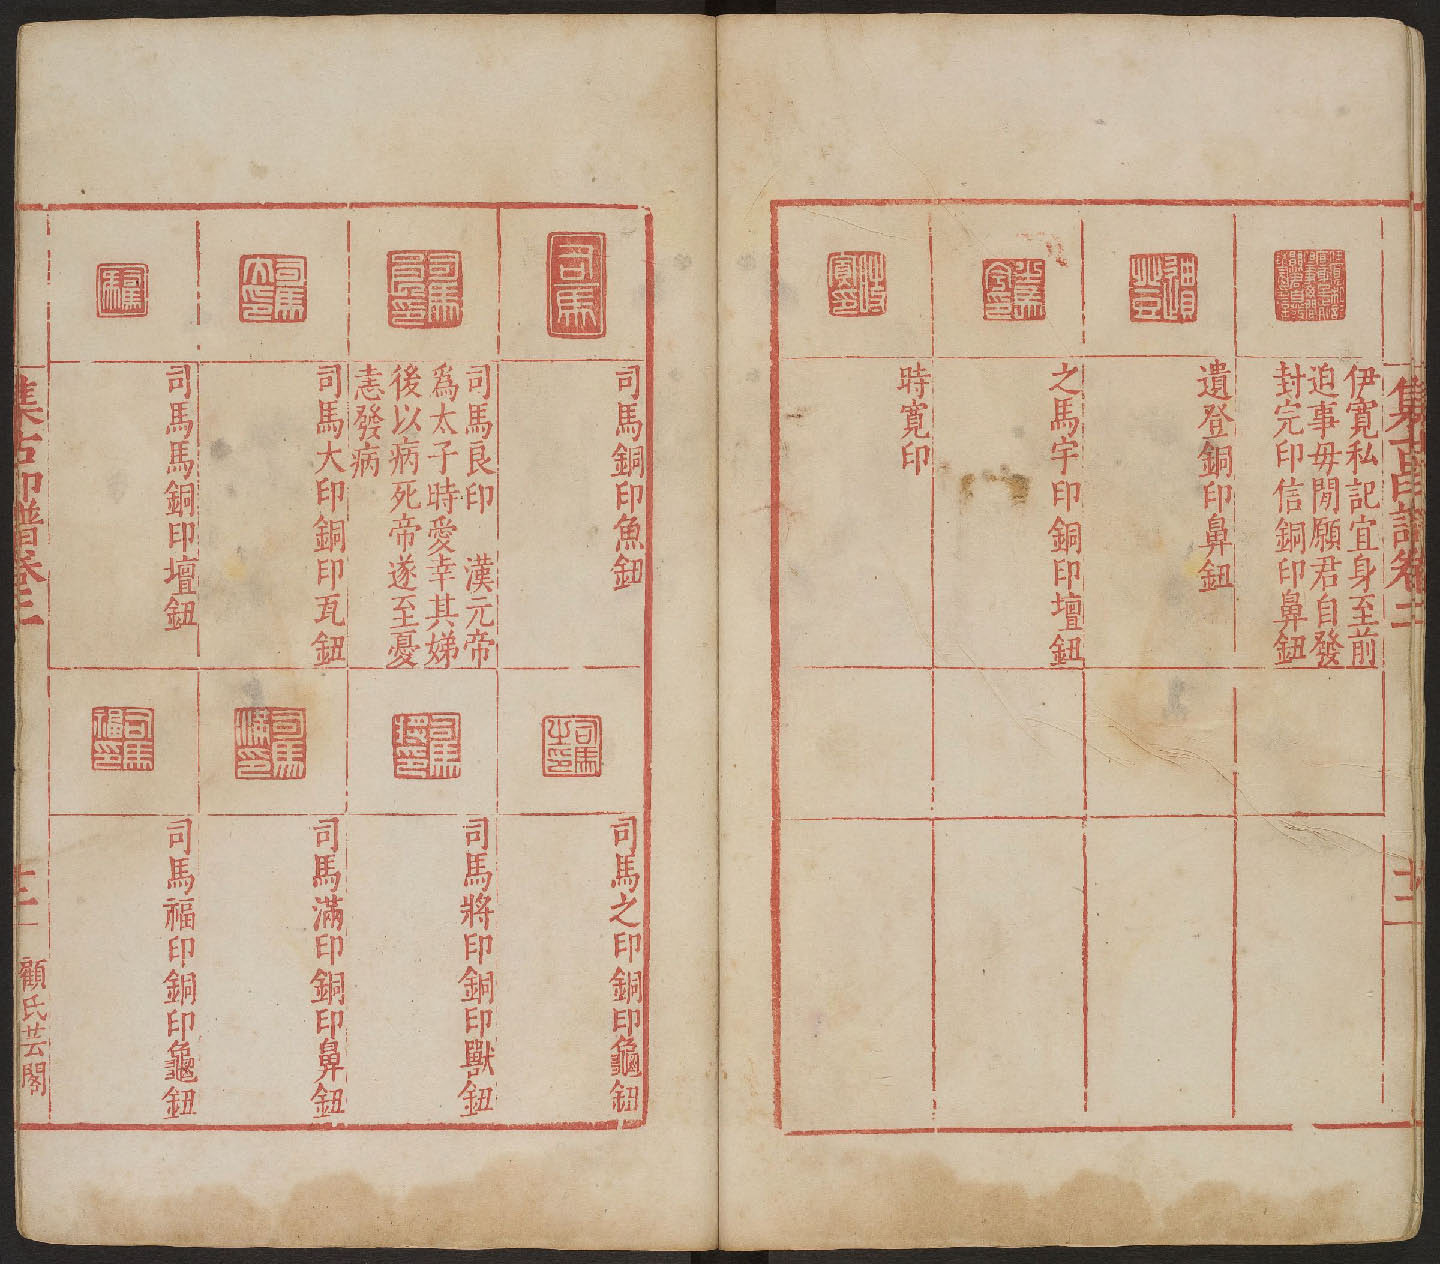 伊寛私記宜身至前
迫事毋閒願君自發
封完印信銅印鼻鈕
遺登銅印鼻鈕
之馬宇印銅印壇鈕
時寛印
司馬銅印魚鈕
司馬良印 漢元帝
爲太子時愛幸其娣
後以病死帝遂至憂
恚發病
司馬大印銅印瓦鈕
司馬馬銅印壇鈕
司馬之印銅印龜鈕
司馬將印銅印獸鈕
司馬滿印銅印鼻鈕
司馬福印銅印龜鈕
集古印譜卷二
顧氏芸閣